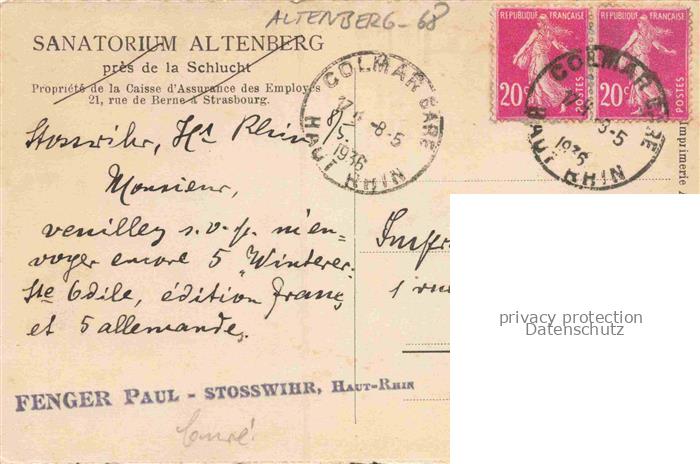 ALTENBERG - 68
SANATORIUM ALTENBERG
près de la Schlucht
Propriété de la Caisse d'Assurance des Employés
21, rue de Berne à Strasbourg.
COLMAR GARE
-8-5
1936
HAUT RHIN
REPUBLIQUE FRANÇAISE
20c
POSTES
REPUBLIQUE FRANÇAISE
20c
POSTES
COLMAR GARE
8-5
1936
HAUT RHIN
Imprimerie
Stosswihr, Ht Rhin 8/5.
Monsieur,
veuillez s.v.p. m'en-
voyer encore 5 "Winterer:
Ste Odile, édition franç
et 5 allemande.
1 rue
FENGER PAUL - STOSSWIHR, HAUT-RHIN
Curé
privacy protection
Datenschutz